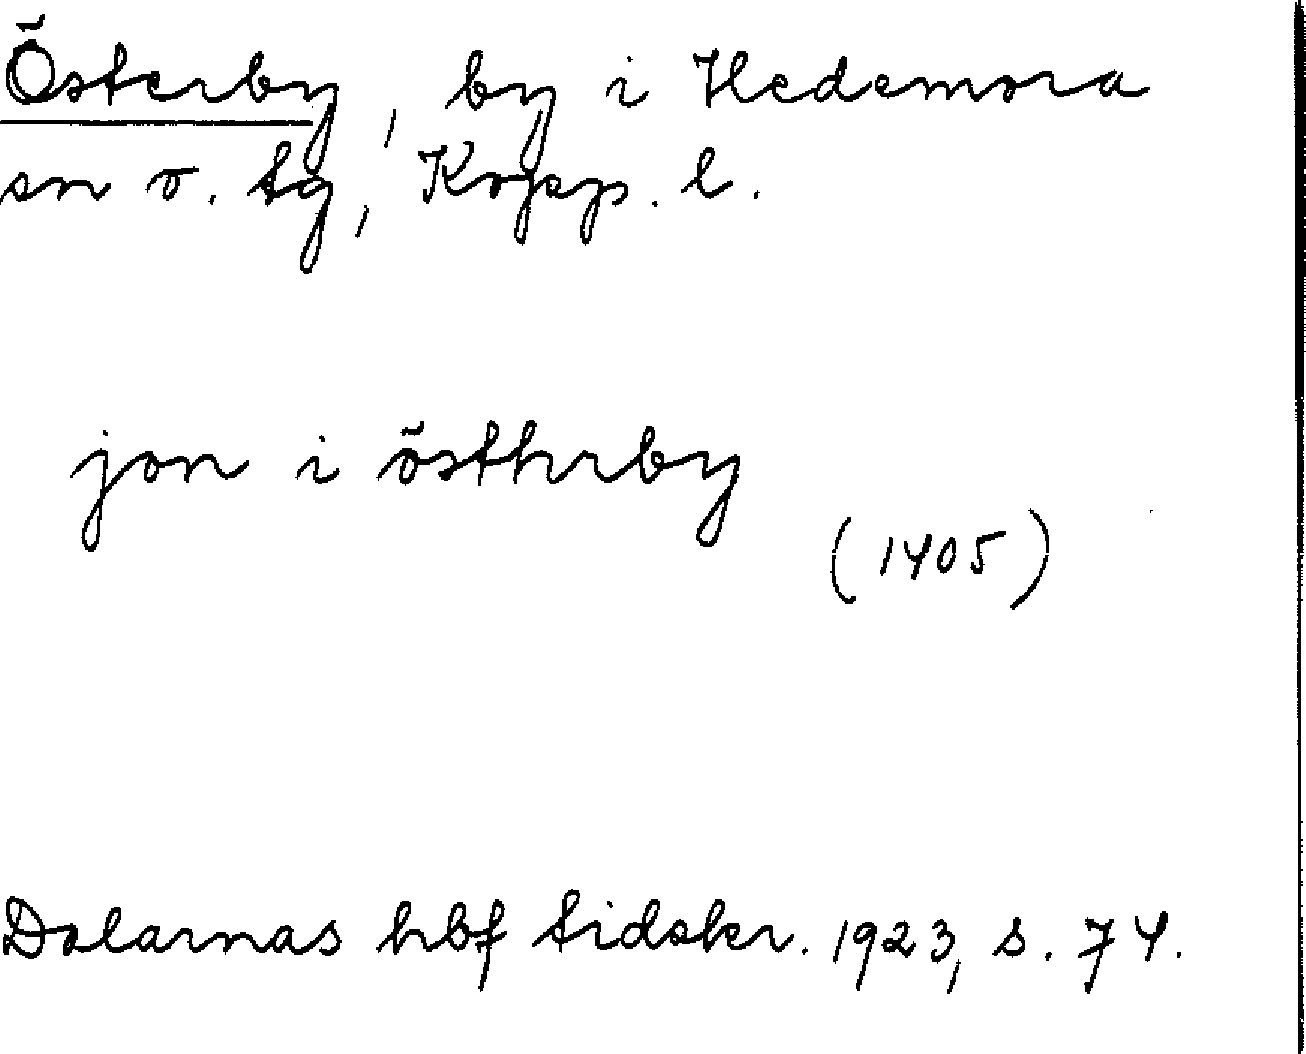 Österby, by i Hedemora
sn o. tg, Kopp. l.
jon i östhrby
(1405)
Dalarnas hbf tidskr. 1923, s. 74.